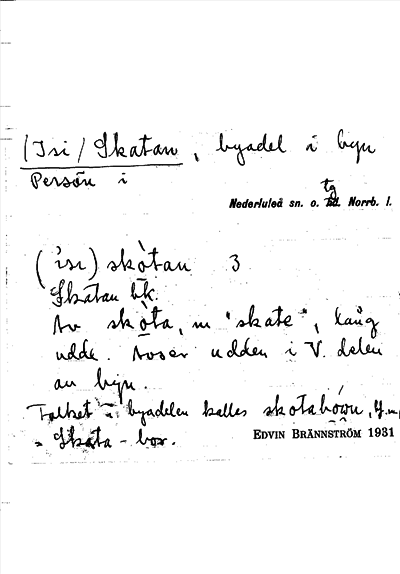 (Isi) Skatan, byadel i byn
Persön i
tg
Nederluleå sn. o. hd. Norrb. l.
(ìsı) skòtan 3
Skatan hk.
Av skota, m "skate", lång
udde. Avser udden i V. delen
av byn.
Folket i byadelen kalles skotabówn,
= Skata-bor.
EDVIN BRÄNNSTRÖM 1931